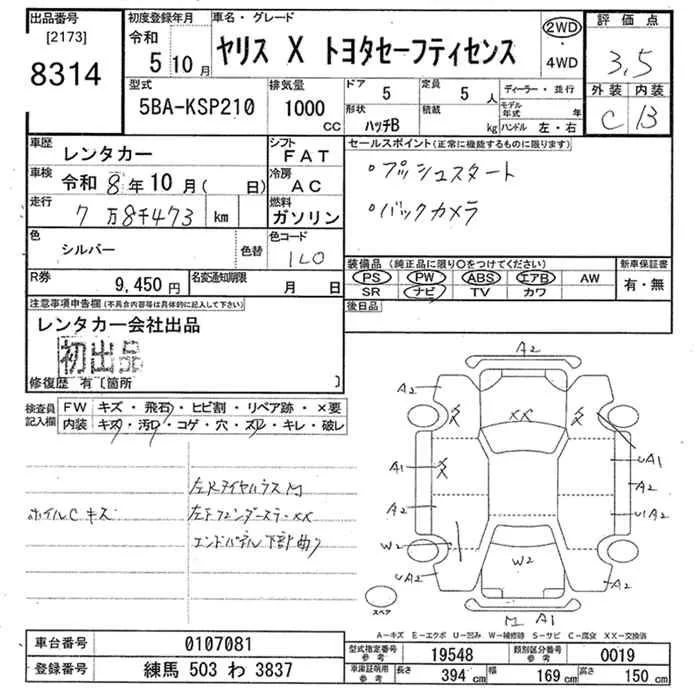 出品番号
[2173]
8314
初度登録年月
令和
5 10月
車名・グレード
ヤリス X トヨタセーフティセンス
2WD
・
4WD
評価点
3.5
外装 内装
C B
型式
5BA-KSP210
排気量
1000
CC
ドア 5
定員 5 人
形状
ハッチB
積載 kg
ディーラー・並行
モデル年式 年
ハンドル 左・右
車歴
レンタカー
シフト
FAT
車検 令和 8年 10月( 日)
冷房
AC
走行 7万8千473 km
燃料
ガソリン
色 シルバー 色替
色コード
1L0
R券 9,450円
名変通知期限 月 日
セールスポイント(正常に機能するものに限ります)
・プッシュスタート
・バックカメラ
装備品 (純正品に限り○をつけてください)
PS PW ABS エアB AW
SR ナビ TV カワ
新車保証書
有・無
後日品
注意事項申告欄(不具合内容等は具体的に記入して下さい)
レンタカー会社出品
初出品
修復歴 有〔箇所 〕
検査員記入欄
FW キズ・飛石・ヒビ割・リペア跡・×要
内装 キズ・汚レ・コゲ・穴・スレ・キレ・破レ
左RタイヤハウスM
ホイルC キズ
左Fフェンダーステーxx
エンドパネル下部曲り
A2
A2
A2
xx
A1
UA1
A2
A2
U1A2
W2
W2
UA2
A2
M A1
スペア
A－キズ E－エクボ U－凹み W－補修跡 S－サビ C－腐食 XX－交換済
車台番号 0107081
登録番号 練馬 503 わ 3837
型式指定番号 参考 19548
類別区分番号 参考 0019
車庫証明用 参考
長さ 394 cm
幅 169 cm
高さ 150 cm